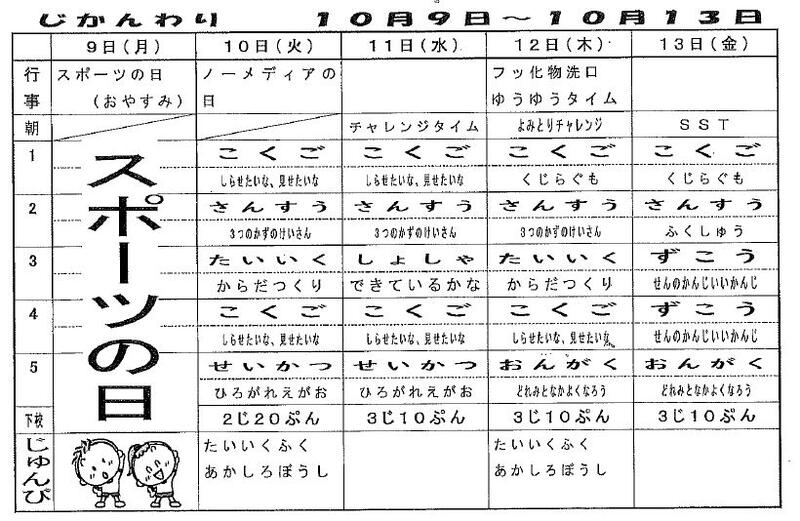 じかんわり 10月9日～10月13日
9日(月) 10日(火) 11日(水) 12日(木) 13日(金)
行事 スポーツの日 ノーメディアの フッ化物洗口
(おやすみ) 日 ゆうゆうタイム
朝 チャレンジタイム よみとりチャレンジ SST
スポーツの日
1 こくご こくご こくご こくご
しらせたいな、見せたいな しらせたいな、見せたいな くじらぐも くじらぐも
2 さんすう さんすう さんすう さんすう
3つのかずのけいさん 3つのかずのけいさん 3つのかずのけいさん ふくしゅう
3 たいいく しょしゃ たいいく ずこう
からだつくり できているかな からだつくり せんのかんじいいかんじ
4 こくご こくご こくご ずこう
しらせたいな、見せたいな しらせたいな、見せたいな しらせたいな、見せたいな せんのかんじいいかんじ
5 せいかつ せいかつ おんがく おんがく
ひろがれえがお ひろがれえがお どれみとなかよくなろう どれみとなかよくなろう
下校 2じ20ぷん 3じ10ぷん 3じ10ぷん 3じ10ぷん
じゅんび たいいくふく たいいくふく
あかしろぼうし あかしろぼうし